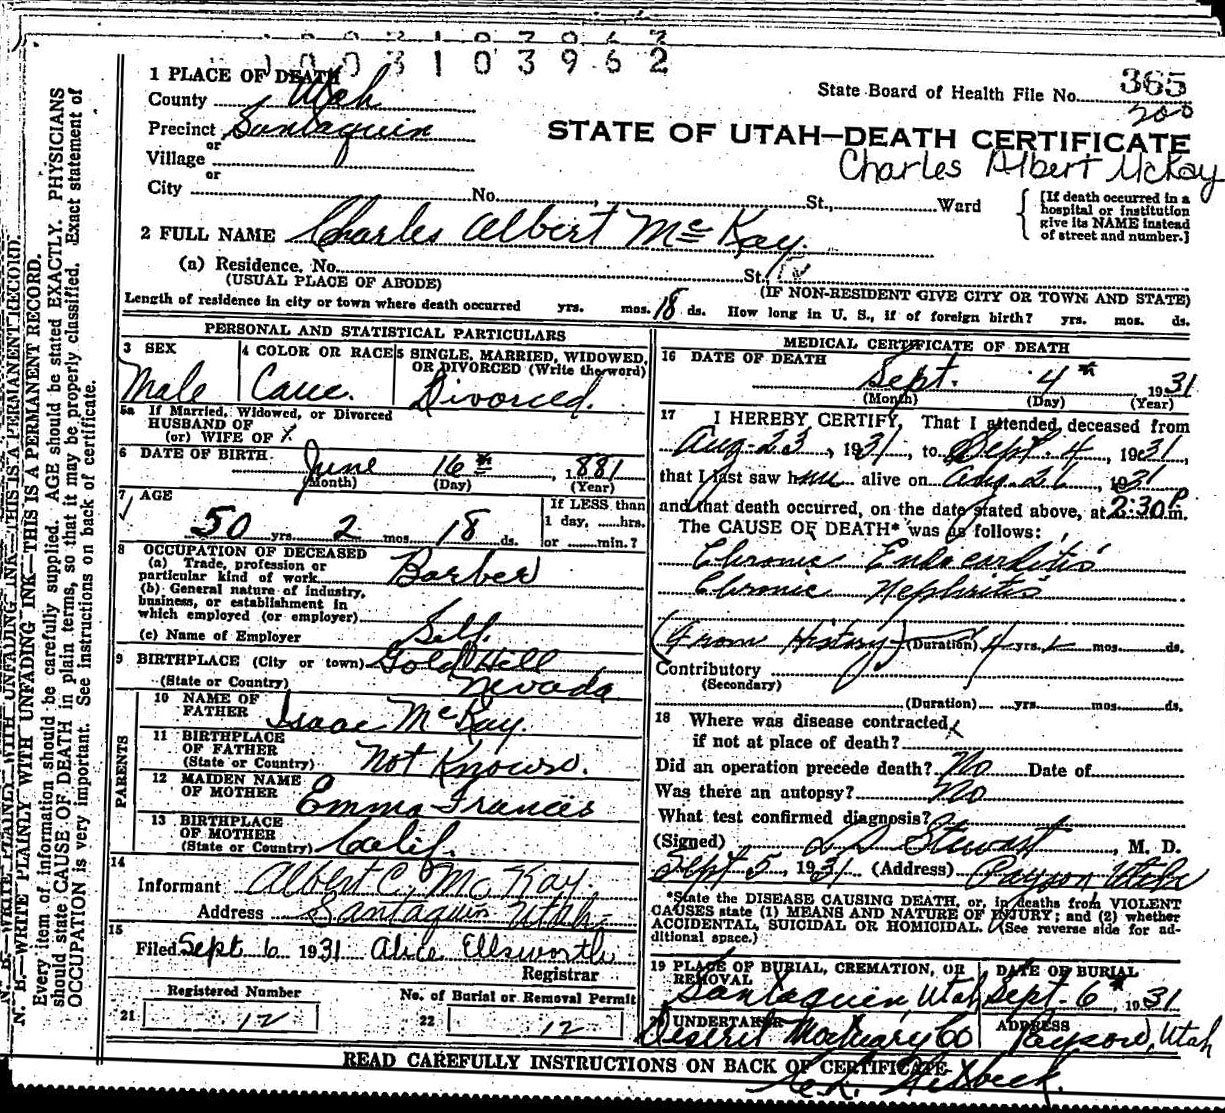 1003103962
1 PLACE OF DEATH
County Utah
365
State Board of Health File No.
200
Precinct Santaquin
or
STATE OF UTAH—DEATH CERTIFICATE
Village
or
Charles Albert McKay
City No. St., Ward
[If death occurred in a hospital or institution give its NAME instead of street and number.]
2 FULL NAME Charles Albert McKay.
(a) Residence. No. St.,
(USUAL PLACE OF ABODE)
(IF NON-RESIDENT GIVE CITY OR TOWN AND STATE)
Length of residence in city or town where death occurred yrs. mos. 18 ds. How long in U. S., if of foreign birth? yrs. mos. ds.
PERSONAL AND STATISTICAL PARTICULARS
3 SEX
Male
4 COLOR OR RACE
Cauc.
5 SINGLE, MARRIED, WIDOWED, OR DIVORCED (Write the word)
Divorced.
5a If Married, Widowed, or Divorced
HUSBAND OF
(or) WIFE OF
6 DATE OF BIRTH
June 16th 1881
(Month) (Day) (Year)
7 AGE
50 yrs. 2 mos. 18 ds.
If LESS than
1 day, ......hrs.
or ......min.?
8 OCCUPATION OF DECEASED
(a) Trade, profession or
particular kind of work Barber
(b) General nature of industry,
business, or establishment in
which employed (or employer)
(c) Name of Employer Self.
9 BIRTHPLACE (City or town) Gold Hill
(State or Country) Nevada
PARENTS
10 NAME OF
FATHER Isaac McKay.
11 BIRTHPLACE
OF FATHER
(State or Country) Not Known.
12 MAIDEN NAME
OF MOTHER Emma Frances
13 BIRTHPLACE
OF MOTHER
(State or Country) Calif.
14
Informant Albert C. McKay
Address Santaquin Utah
15
Filed Sept 6 1931 Alice Ellsworth
Registrar
Registered Number
21 12
No. of Burial or Removal Permit
22 12
MEDICAL CERTIFICATE OF DEATH
16 DATE OF DEATH
Sept. 4th 1931
(Month) (Day) (Year)
17 I HEREBY CERTIFY, That I attended deceased from
Aug-23, 1931, to Sept. 4, 1931,
that I last saw him alive on Aug-26, 1931
and that death occurred, on the date stated above, at 2:30 P.m.
The CAUSE OF DEATH* was as follows:
Chronic Endocarditis
Chronic Nephritis
(From History) (Duration) 4 yrs. mos. ds.
Contributory
(Secondary)
(Duration) yrs. mos. ds.
18 Where was disease contracted
if not at place of death?
Did an operation precede death? No Date of
Was there an autopsy? No
What test confirmed diagnosis?
(Signed) L D Stewart, M. D.
Sept 5, 1931 (Address) Payson Utah
*State the DISEASE CAUSING DEATH, or, in deaths from VIOLENT
CAUSES state (1) MEANS AND NATURE OF INJURY; and (2) whether
ACCIDENTAL, SUICIDAL OR HOMICIDAL. (See reverse side for ad-
ditional space.)
19 PLACE OF BURIAL, CREMATION, OR
REMOVAL
Santaquin, Utah
DATE OF BURIAL
Sept. 6th 1931
20 UNDERTAKER
Deseret Mortuary Co
ADDRESS
Payson, Utah
READ CAREFULLY INSTRUCTIONS ON BACK OF CERTIFICATE
N. B.—WRITE PLAINLY WITH UNFADING INK—THIS IS A PERMANENT RECORD.
N. B.—WRITE PLAINLY WITH UNFADING INK—THIS IS A PERMANENT RECORD.
Every item of information should be carefully supplied. AGE should be stated EXACTLY. PHYSICIANS
should state CAUSE OF DEATH in plain terms, so that it may be properly classified. Exact statement of
OCCUPATION is very important. See instructions on back of certificate.